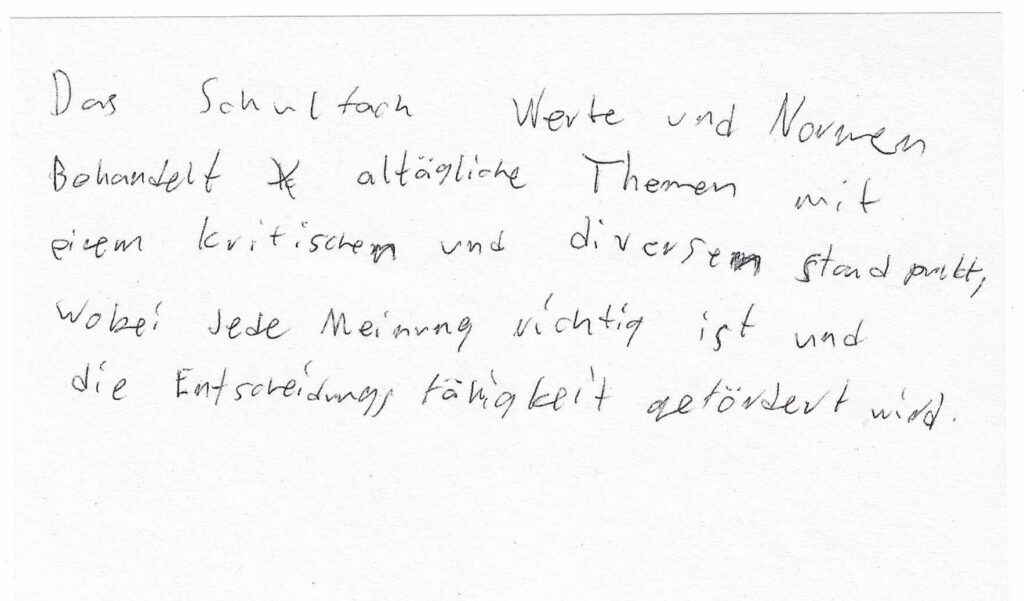 Das Schulfach Werte und Normen
Behandelt altägliche Themen mit
einem kritischen und diversem standpunkt,
wobei Jede Meinung richtig ist und
die Entscheidungsfähigkeit gefördert wird.